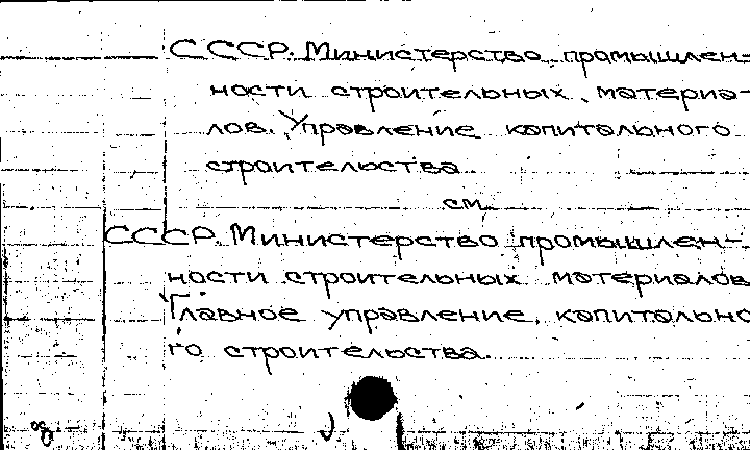 СССР. Министерство промышлен-
ности строительных материа-
лов. Управление капитального
строительства
см.
СССР. Министерство промышлен-
ности строительных материалов.
Главное управление капитально-
го строительства.